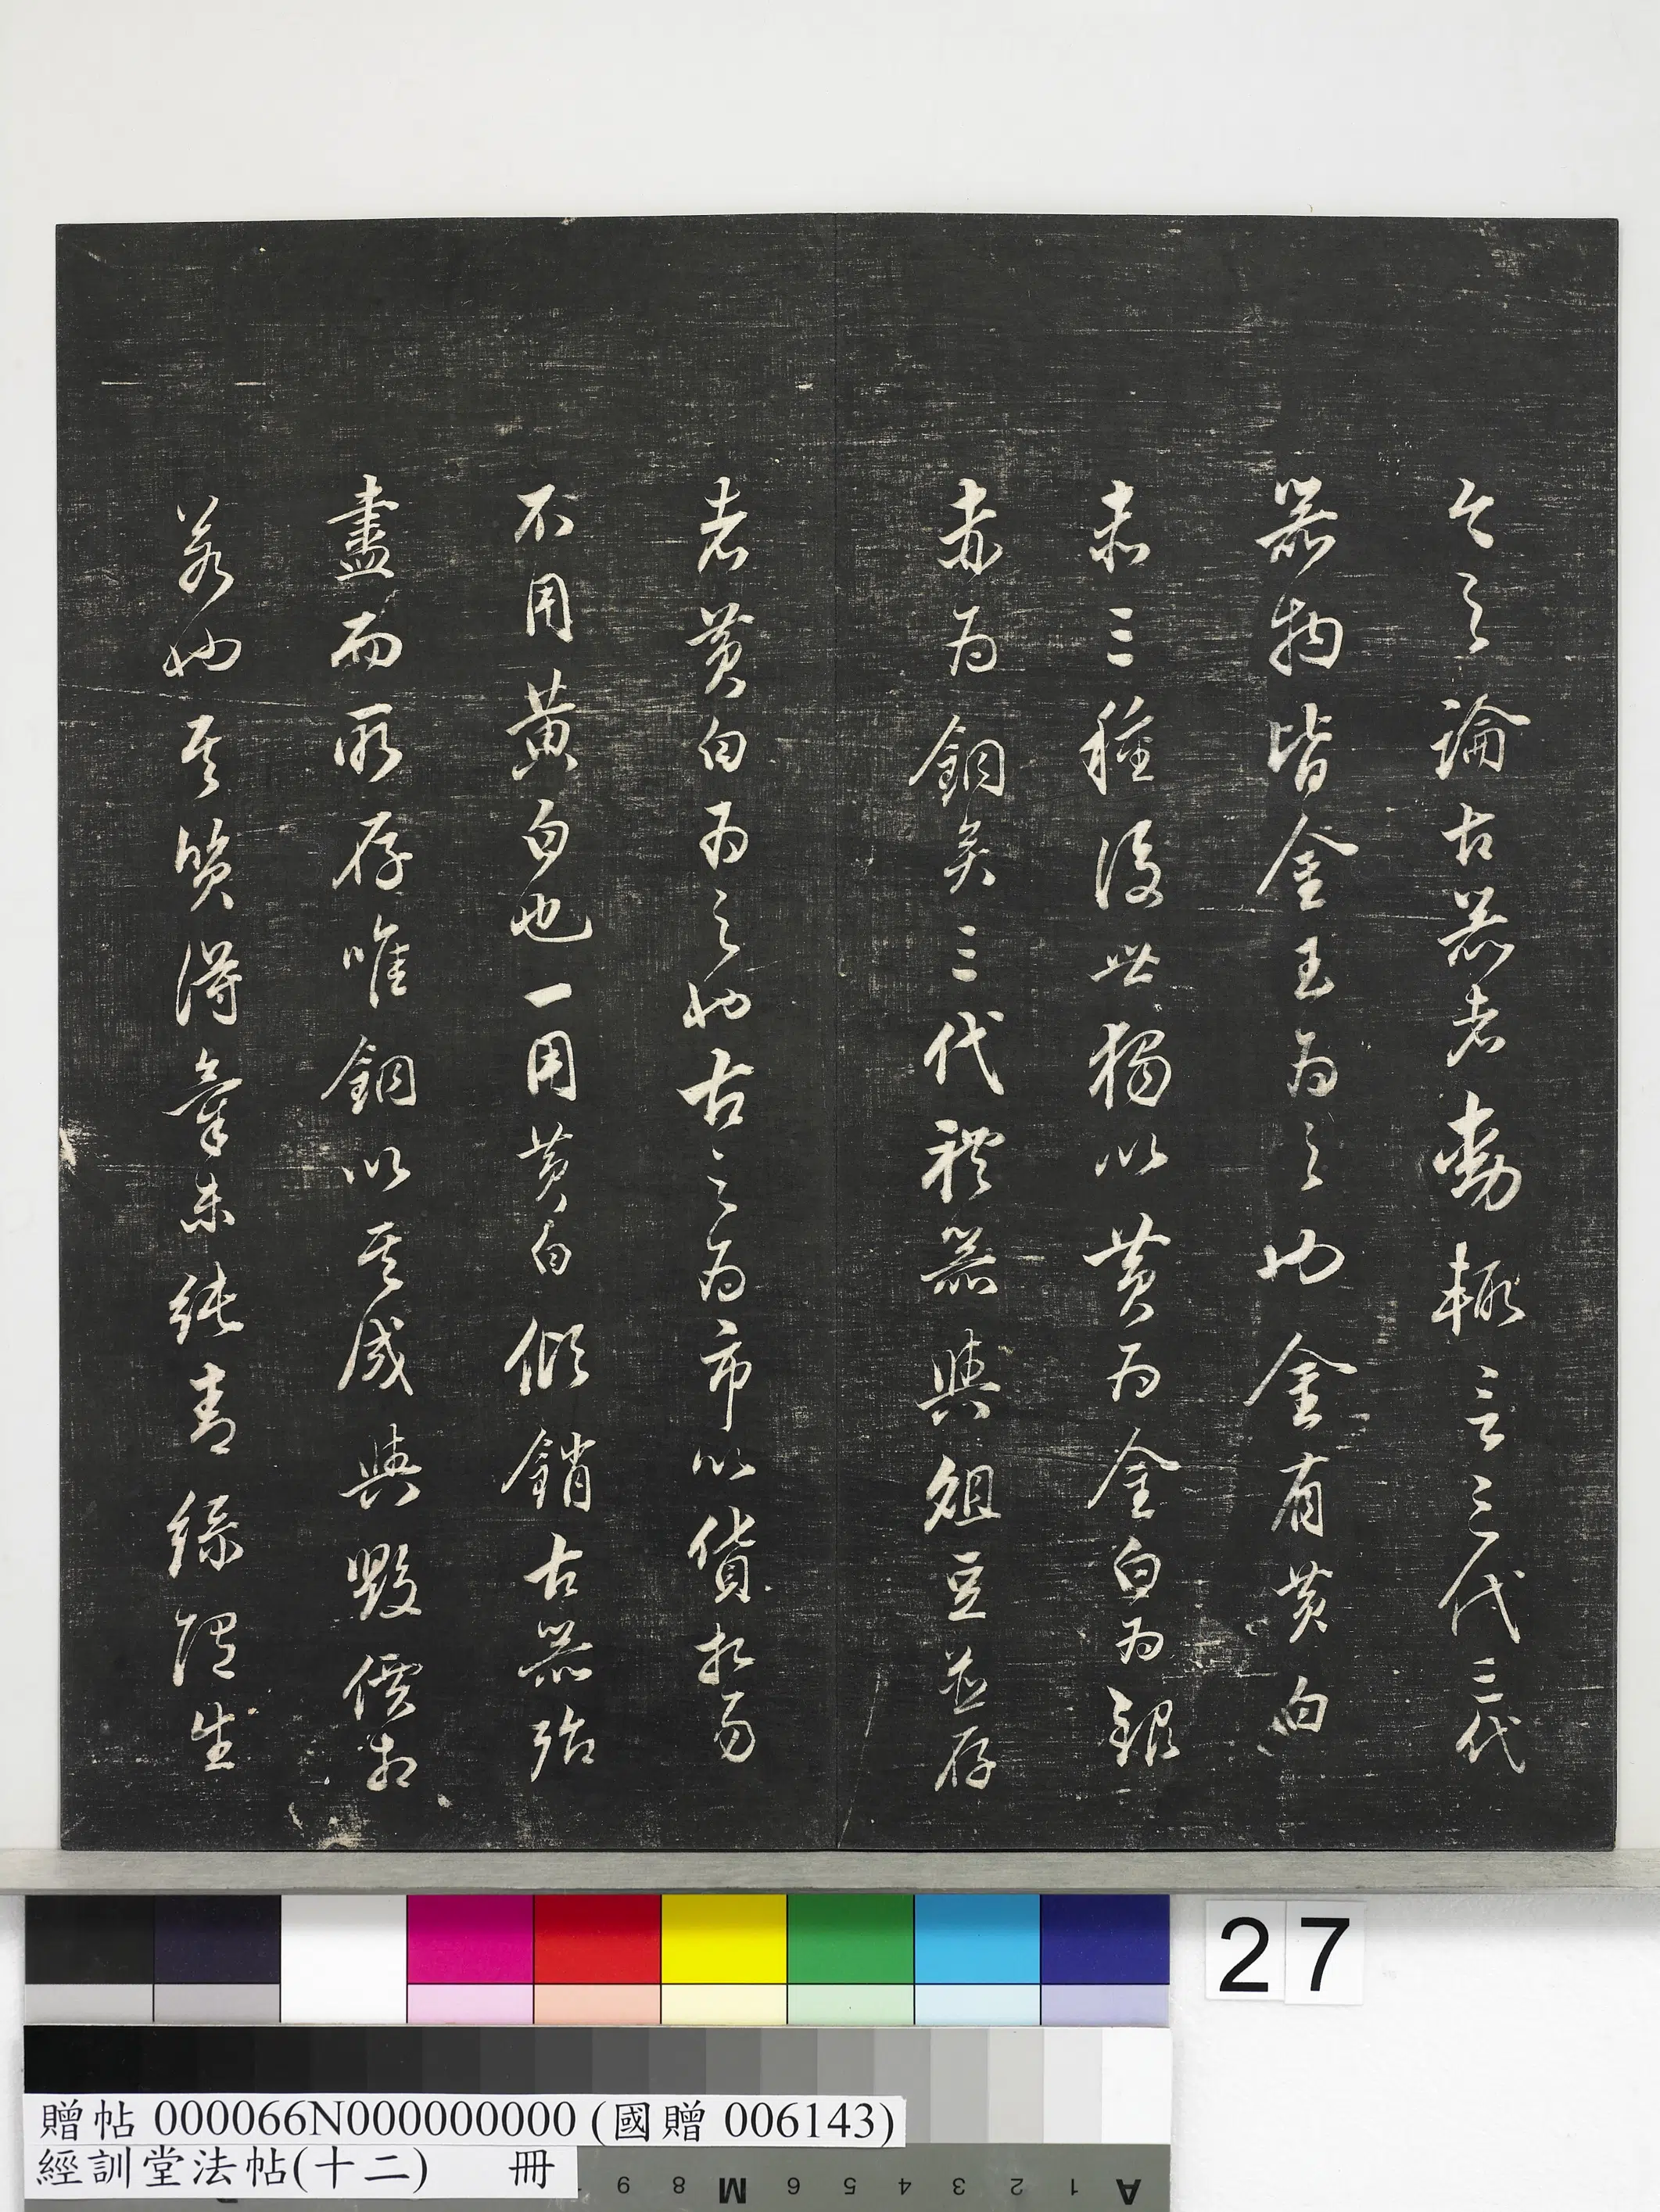 今之論古器者動輒言三代三代
器物皆金玉為之也金有黃白
赤三種後世獨以黃為金白為銀
赤為銅矣三代禮器與俎豆並存
者黃白為之也古之為市以貨相易
不用黃白也一用黃白傾銷古器殆
盡而所存唯銅以其成與毀價相
若也其質得氣未純青綠隱生
27
贈帖 000066N000000000 (國贈 006143)
經訓堂法帖(十二) 冊
A 1 2 3 4 5 6 M 8 9